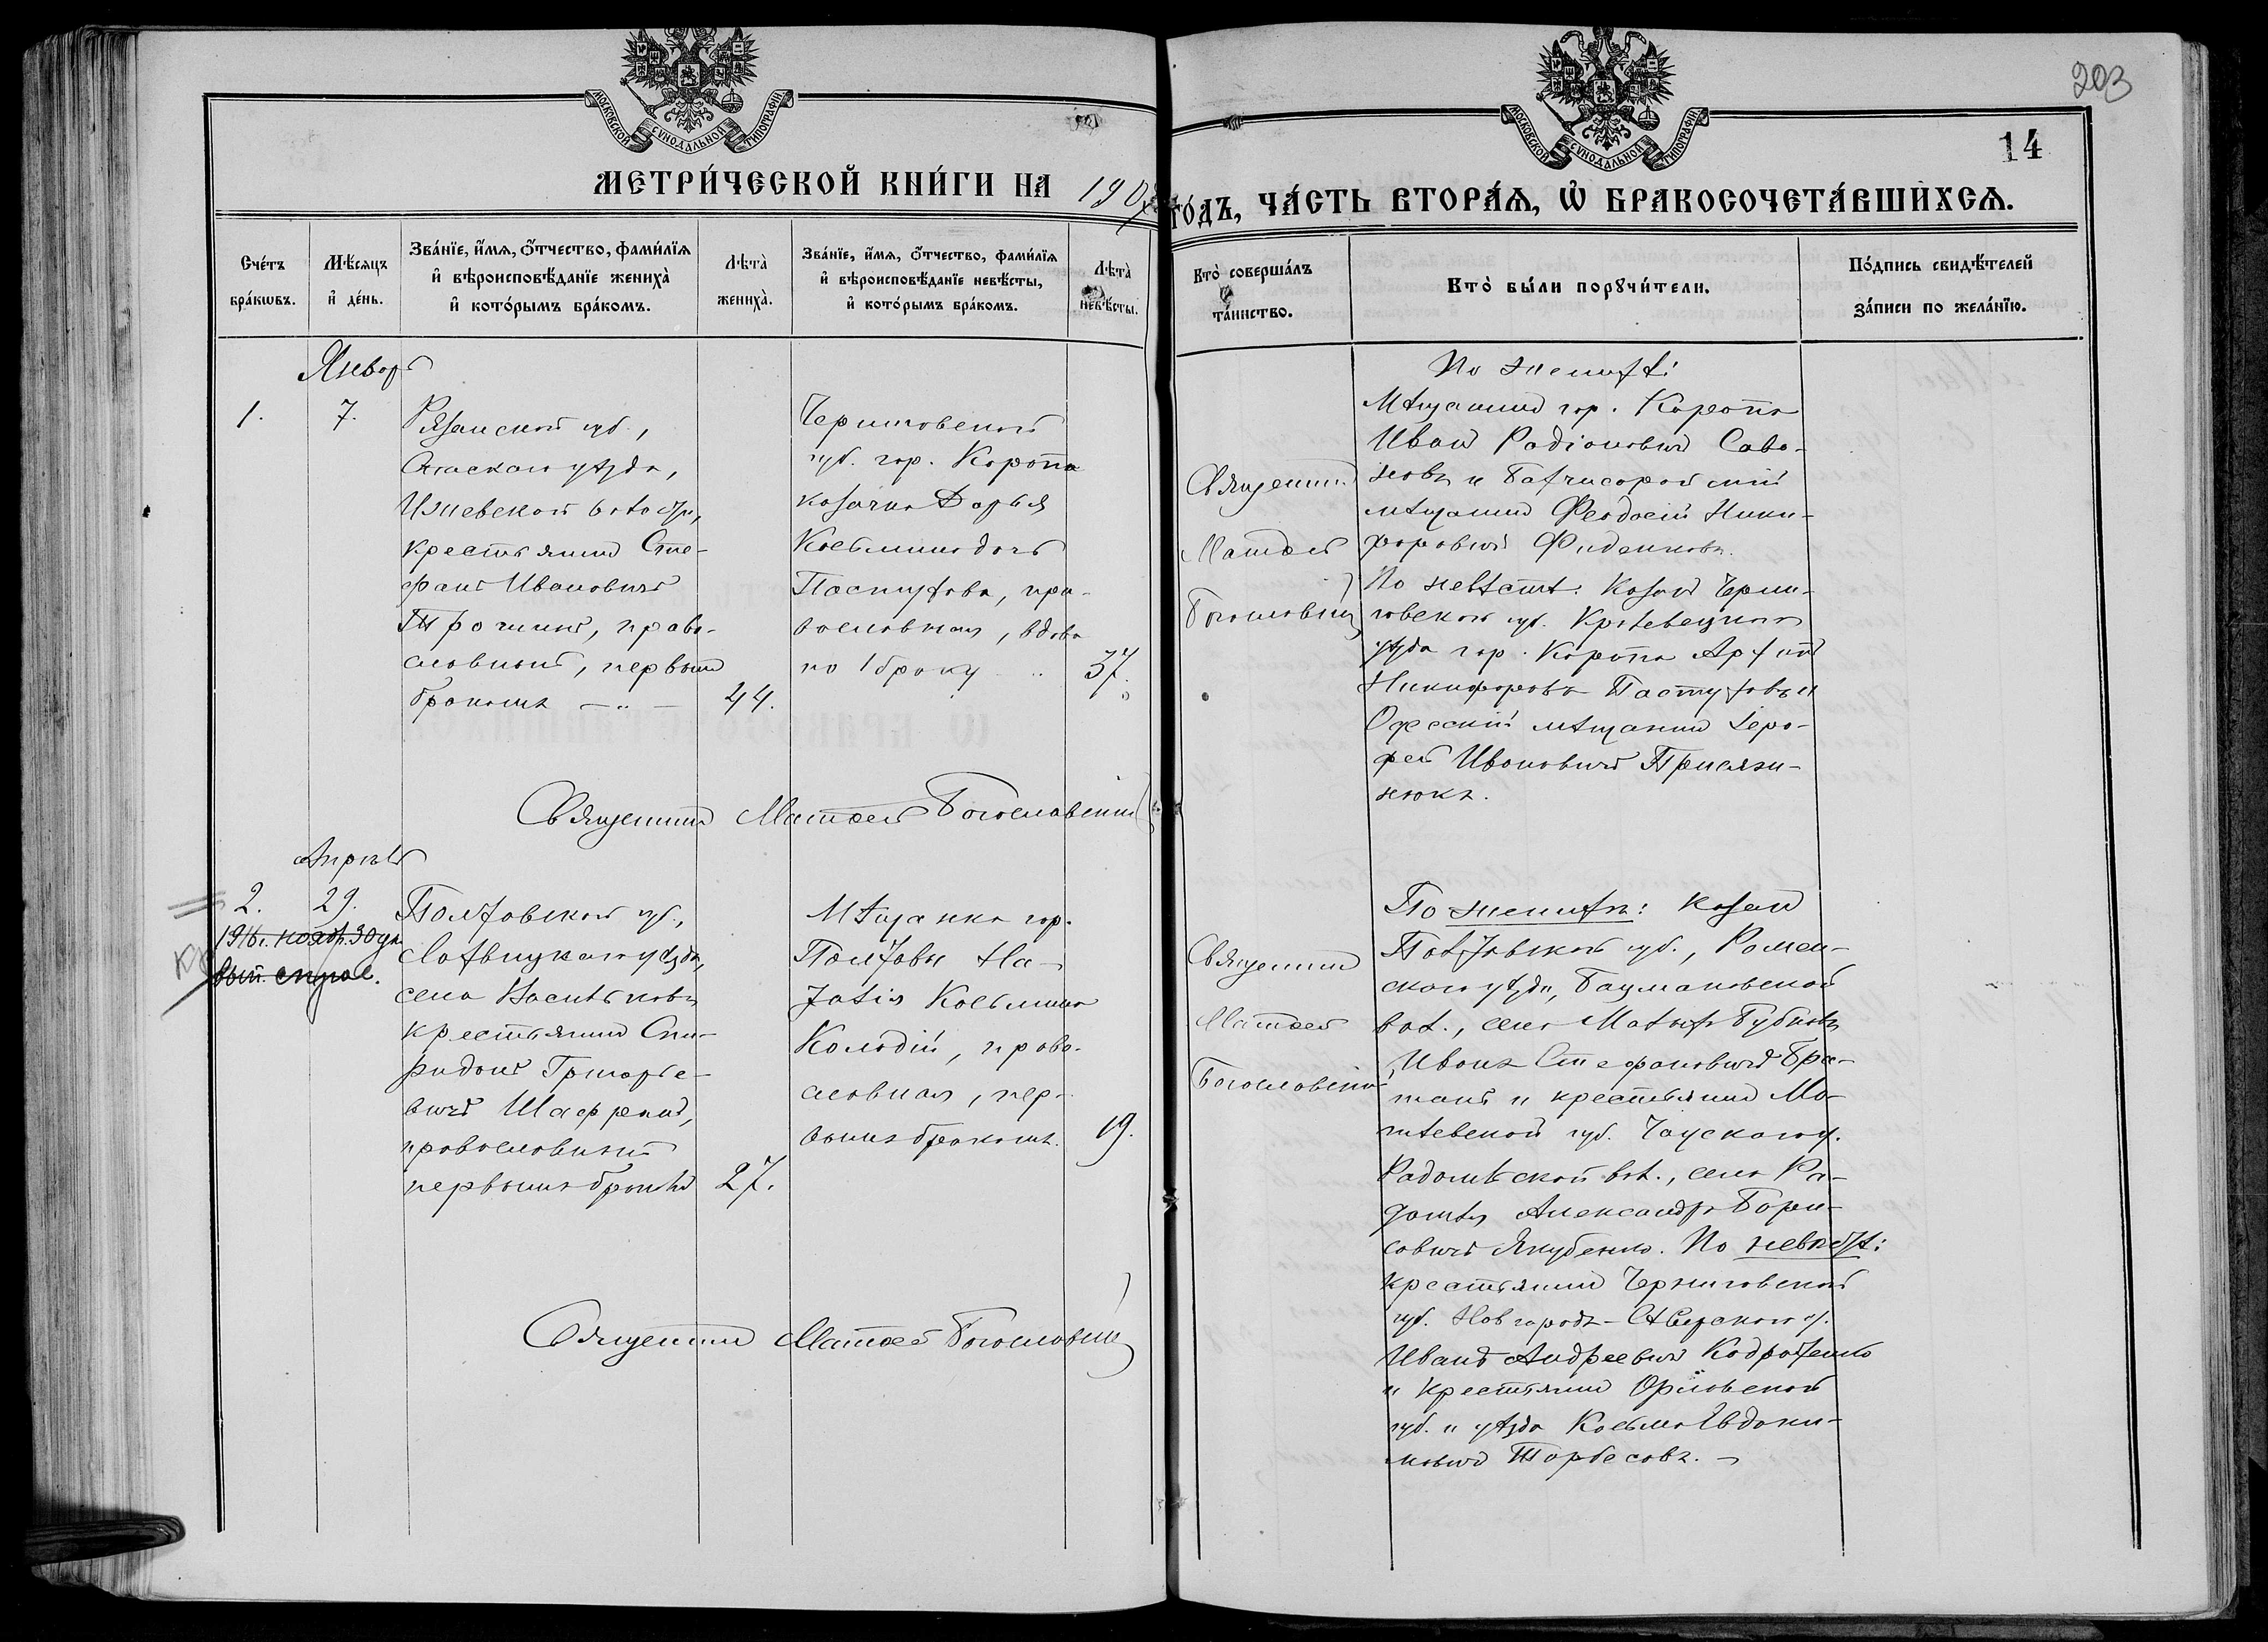 203
14
МОСКОВСКОЙ СѴНОДАЛЬНОЙ ТИПОГРАФІИ
МОСКОВСКОЙ СѴНОДАЛЬНОЙ ТИПОГРАФІИ
МЕТРИ́ЧЕСКОЙ КНИ́ГИ НА 190
ГО́ДЪ, ЧА́СТЬ ВТОРА́Ѧ, Ѡ҆ БРАКОСОЧЕТА́ВШИХСѦ.
Сче́тъ бра́кωвъ.
Мѣ́сяцъ и҆ де́нь.
Зва́нїе, и҆́мѧ, ѻ҆́тчество, фами́лїѧ
и҆ вѣроисповѣ́данїе жениха̀
и҆ кото́рымъ бра́комъ.
Лѣта̀ жениха̀.
Зва́нїе, и҆́мѧ, ѻ҆́тчество, фами́лїѧ
и҆ вѣроисповѣ́данїе невѣ́сты,
и҆ кото́рымъ бра́комъ.
Лѣта̀ невѣ́сты.
Кто̀ соверша́лъ та́инство.
Кто̀ бы́ли порꙋчи́тели.
По́дпись свидѣ́телей
за́писи по жела́нїю.
Январь
1.
7.
Рязанской губ.,
Спаскаго уѣзда,
Ижевской волости,
крестьянинъ Сте-
фанъ Ивановичъ
Трошинъ, право-
славный, первымъ
бракомъ — „ —
44.
Черниговской
губ. гор. Коропа
козачка Дарья
Косьмина дочь
Пастухова, пра-
вославная, вдова
по 1 браку „
37.
Священникъ
Матѳей
Богословскій
По женихѣ:
Мѣщанинъ гор. Коропа
Иванъ Радіоновичъ Саво-
новъ и Бахчисарайскій
мѣщанинъ Феодосій Ники-
форовичъ Фиденковъ.
По невѣстѣ: Козакъ Черни-
говской губ. Кролевецкаго
уѣзда гор. Коропа Архипъ
Никифоровъ Пастуховъ и
Одесскій мѣщанинъ Іеро-
фей Ивановичъ Присяж-
нюкъ.
Священникъ Матѳей Богословскій
Апрѣль
2.
29.
1916г. нояб. 30 дн.
вып. справ.
Полтавской губ.,
Лохвицкаго уѣзда,
села Василькова
крестьянинъ Спи-
ридонъ Григорье-
вичъ Шафранъ,
православный
первымъ бракомъ
27.
Мѣщанка гор.
Полтавы На-
талія Косьмина
Колодій, право-
славная, пер-
вымъ бракомъ.
19.
Священникъ
Матѳей
Богословскій
По женихѣ: козакъ
Полтавской губ., Ромен-
скаго уѣзда, Бацмановской
вол., села Малыхъ Бубновъ
Иванъ Стефановичъ Бра-
танъ и крестьянинъ Мо-
гилевской губ. Чаускаго у.
Радомльской вол., села Ра-
домля Александръ Бори-
совичъ Якубенко. По невѣстѣ:
крестьянинъ Черниговской
губ. Новгородъ-Сѣверскаго у.
Иванъ Андреевичъ Кодратенко
и крестьянинъ Орловской
губ. и уѣзда Косьма Евдоки-
мовичъ Торбесовъ. —
Священникъ Матѳей Богословскій